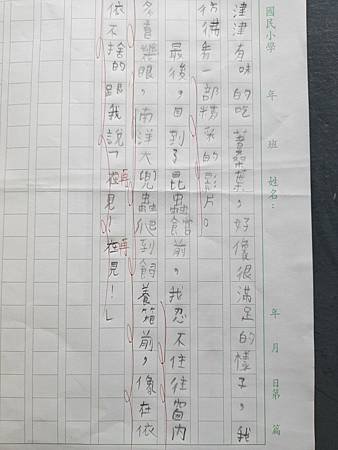 國民小學 年 班 姓名： 年 月 日第 篇
津津有味的吃著桑葉，好像很滿足的樣子，我
彷彿看一部精采的影片。
最後，回到了昆蟲館前，我忍不住往窗內
多看幾眼，南洋大兜蟲爬到飼養箱前，像在依
依不捨的跟我說「在見！在見！」
再
再